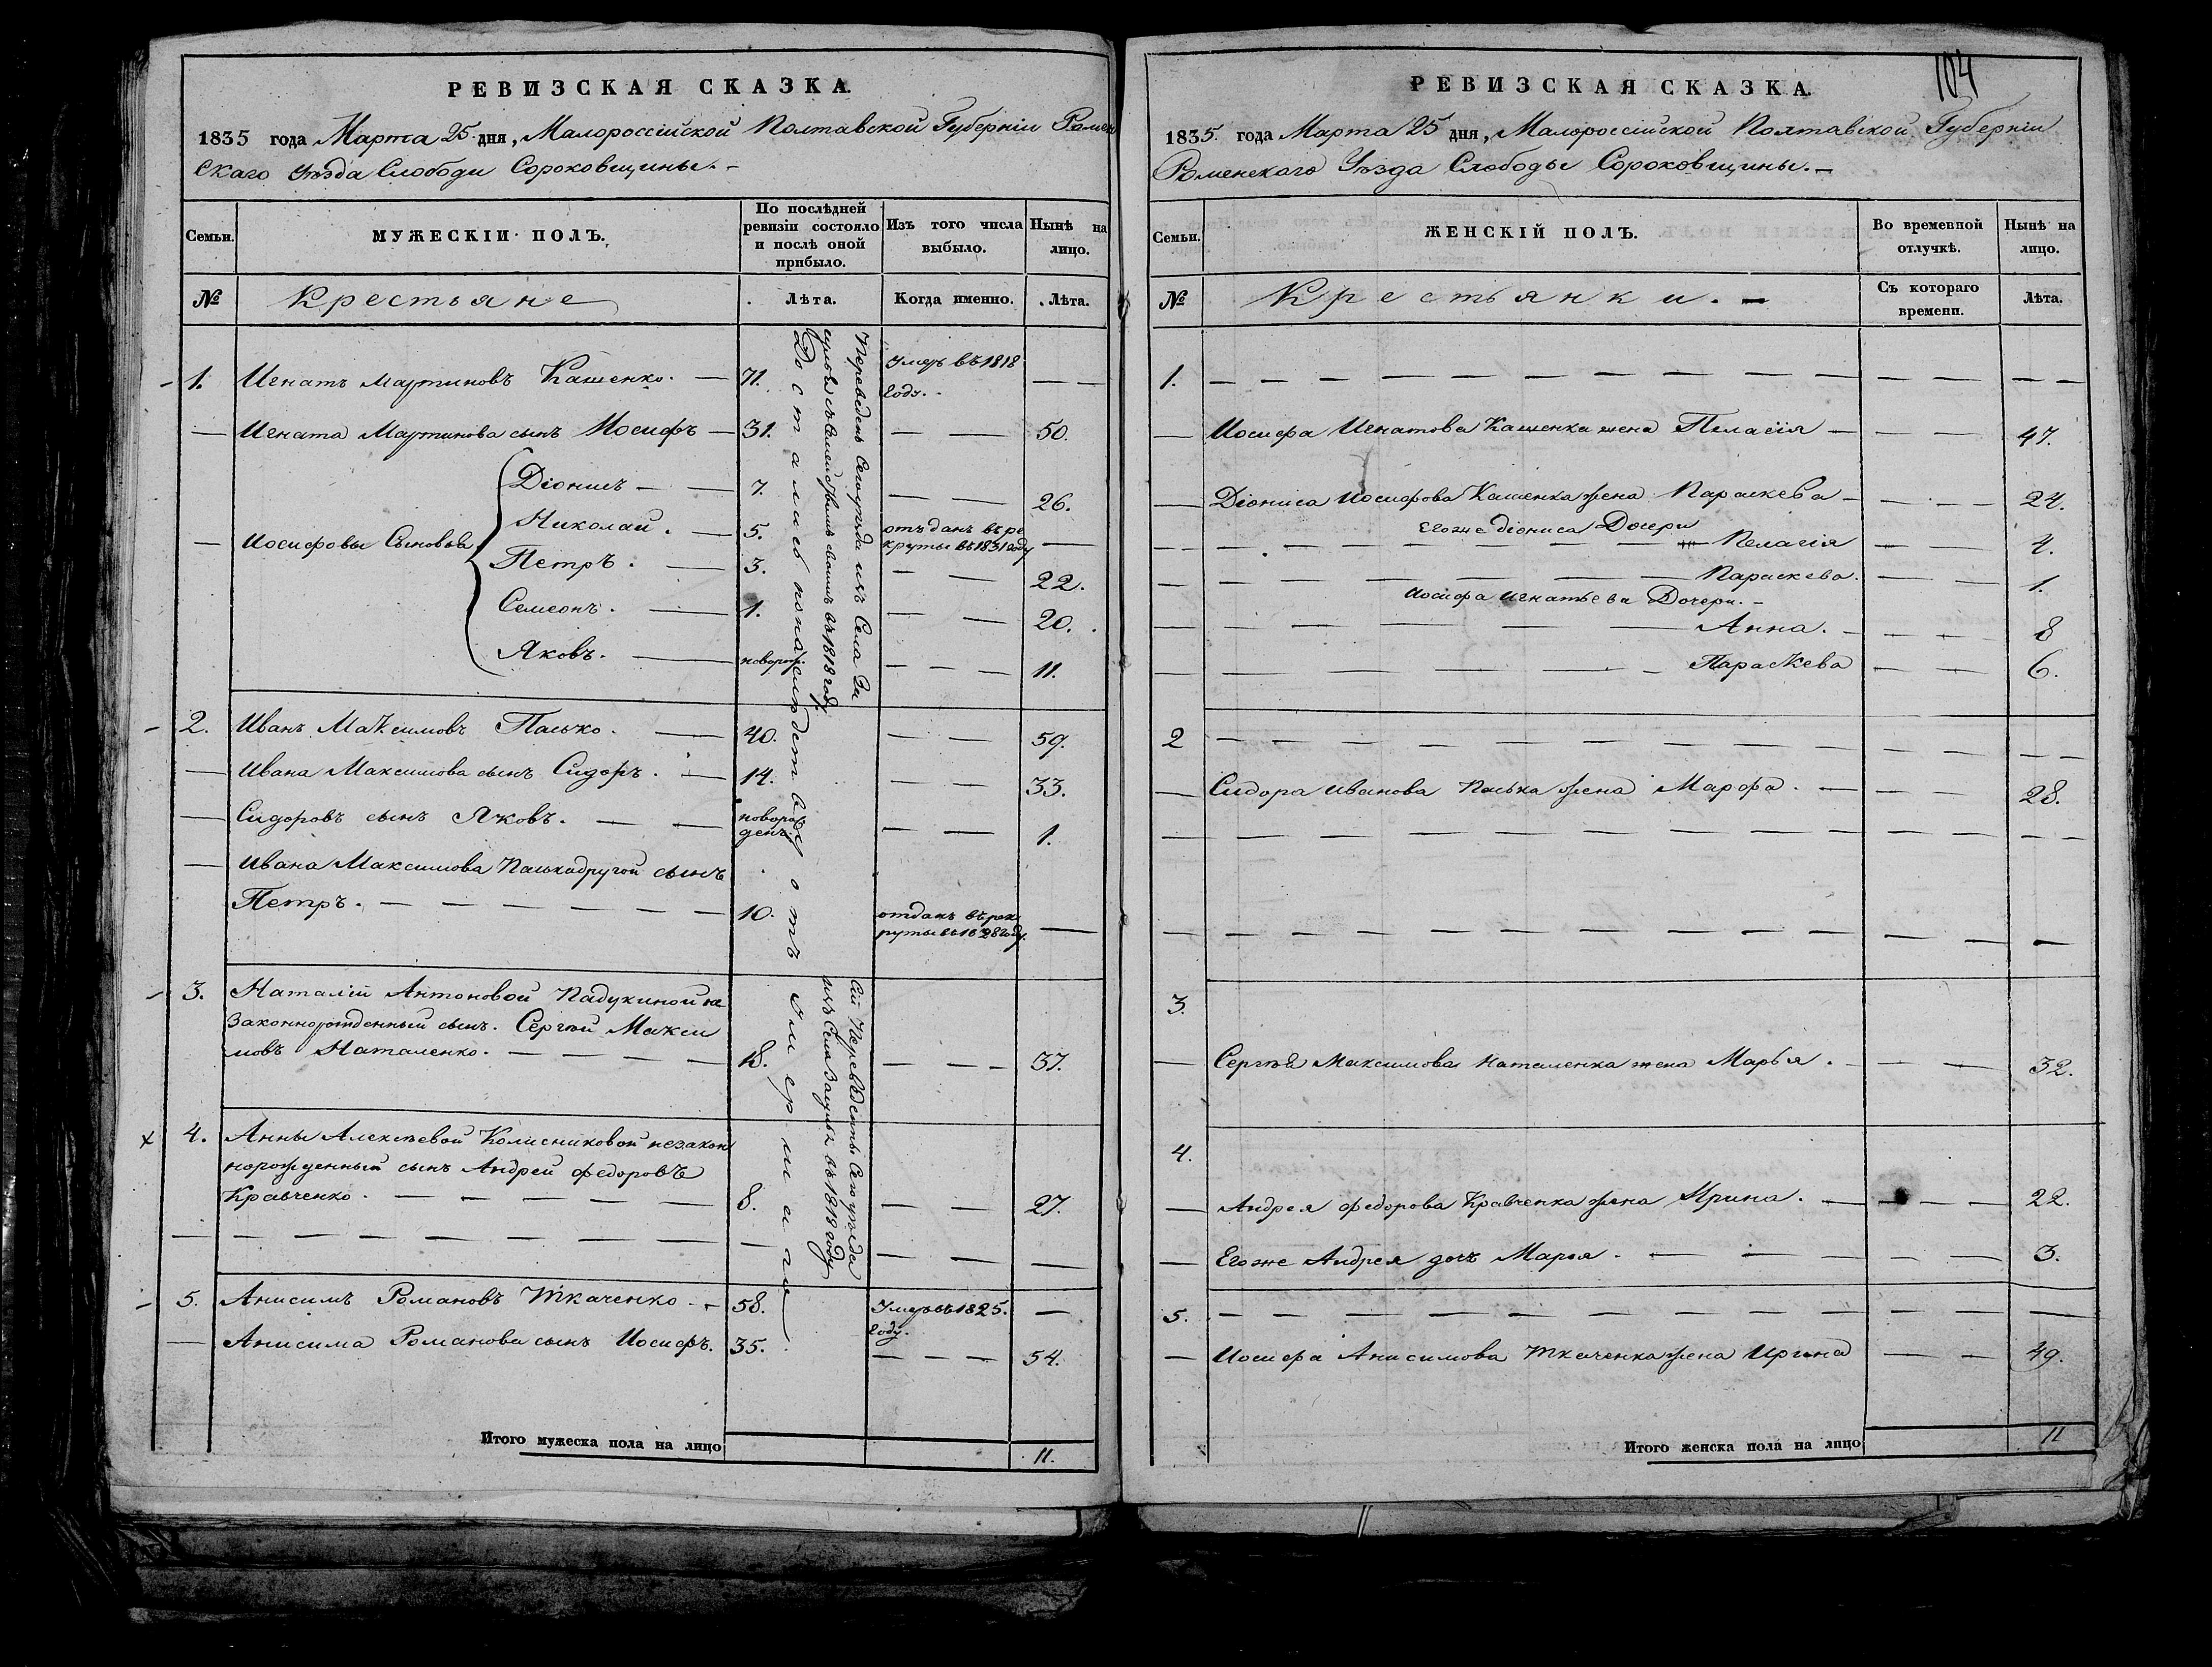 РЕВИЗСКАЯ СКАЗКА.
1835 года Марта 25 дня, Малороссійской Полтавской Губерніи Ромен
скаго уѣзда Слободи Сороковщины. –
Семьи.
МУЖЕСКІИ ПОЛЪ.
По послѣдней
ревизіи состояло
и послѣ оной
прибыло.
Изъ того числа
выбыло.
Нынѣ на
лицо.
№
Крестьяне
Лѣта.
Когда именно.
Лѣта.
1. Игнатъ Мартиновъ Кашенко. — 71. Умеръ въ 1818
году. — —
— Игната Мартинова сынъ Иосифъ — 31. — — 50.
Діонисъ — — 7. — — 26.
Николай. — 5. отъданъ въ ре
круты въ 1831 году —
— Иосифовы Сыновья
Петръ. — 3. — — 22.
Семеонъ. — 1. — — 20.
Яковъ. — новорож. — — — 11.
2. Иванъ Максимовъ Пасько. — 40. — — 59.
— Ивана Максимова сынъ Сидоръ. — 14. — — 33.
— Сидоровъ сынъ Яковъ. — — новорож
денъ. — — 1.
— Ивана Максимова Паська другой сынъ
Петръ. — — — — — — 10. отданъ въ рек
руты въ 1828 году. —
3. Наталіи Антоновой Падукиной не
законнорожденный сынъ. Сергѣй Макси
мовъ Наталенко. — — — — 18. — — — 37.
× 4. Анны Алексѣевой Колисниковой незакон
норожденный сынъ Андрей Федоровъ
Кравченко. — — — — — 8. — — 27.
5. Анисимъ Романовъ Ткаченко. — 58. Умеръ въ 1825.
году. —
— Анисима Романова сынъ Иосифъ. 35. — — — 54.
Переведенъ сего уѣзда изъ Села
съ Семействомъ своимъ въ 1818 году
Достались по наслѣдству отъ
Сіи Переведены Сего уѣзда
изъ Села въ 1818 году
Итого мужеска пола на лицо 11.
104
РЕВИЗСКАЯ СКАЗКА.
1835. года Марта 25 дня, Малороссійской Полтавской Губерніи
Роменскаго Уѣзда Слободы Сороковщины. –
Семьи.
ЖЕНСКІЙ ПОЛЪ.
Во временной
отлучкѣ.
Нынѣ на
лицо.
№
Крестьянки. –
Съ котораго
времени.
Лѣта.
1. — — — — — — — —
— Иосифа Игнатова Кашенка жена Пелагія — — — 47.
— Діониса Иосифова Кашенка жена Параскева — — — 24.
Егоже Діониса Дочери
— — — — Пелагія — — 4.
— — — — Параскева. — — 1.
Иосифа Игнатьева Дочери. –
— — — — Анна. — — — 8
— — — — Параскева — — 6.
2 — — — — — — — —
— Сидора Иванова Паська жена Марфа. — — — 28.
— — — — — — — —
— — — — — — — —
3.
— Сергѣя Максимова Наталенка жена Марья. — — — 32.
4.
— Андрея Федорова Кравченка жена Ирина. — — — 22.
— Егоже Андрея дочь Марья. — — — — 3.
5. — — — — — — — —
— Иосифа Анисимова Ткаченка жена Ирина — — 49.
Итого женска пола на лицо 11